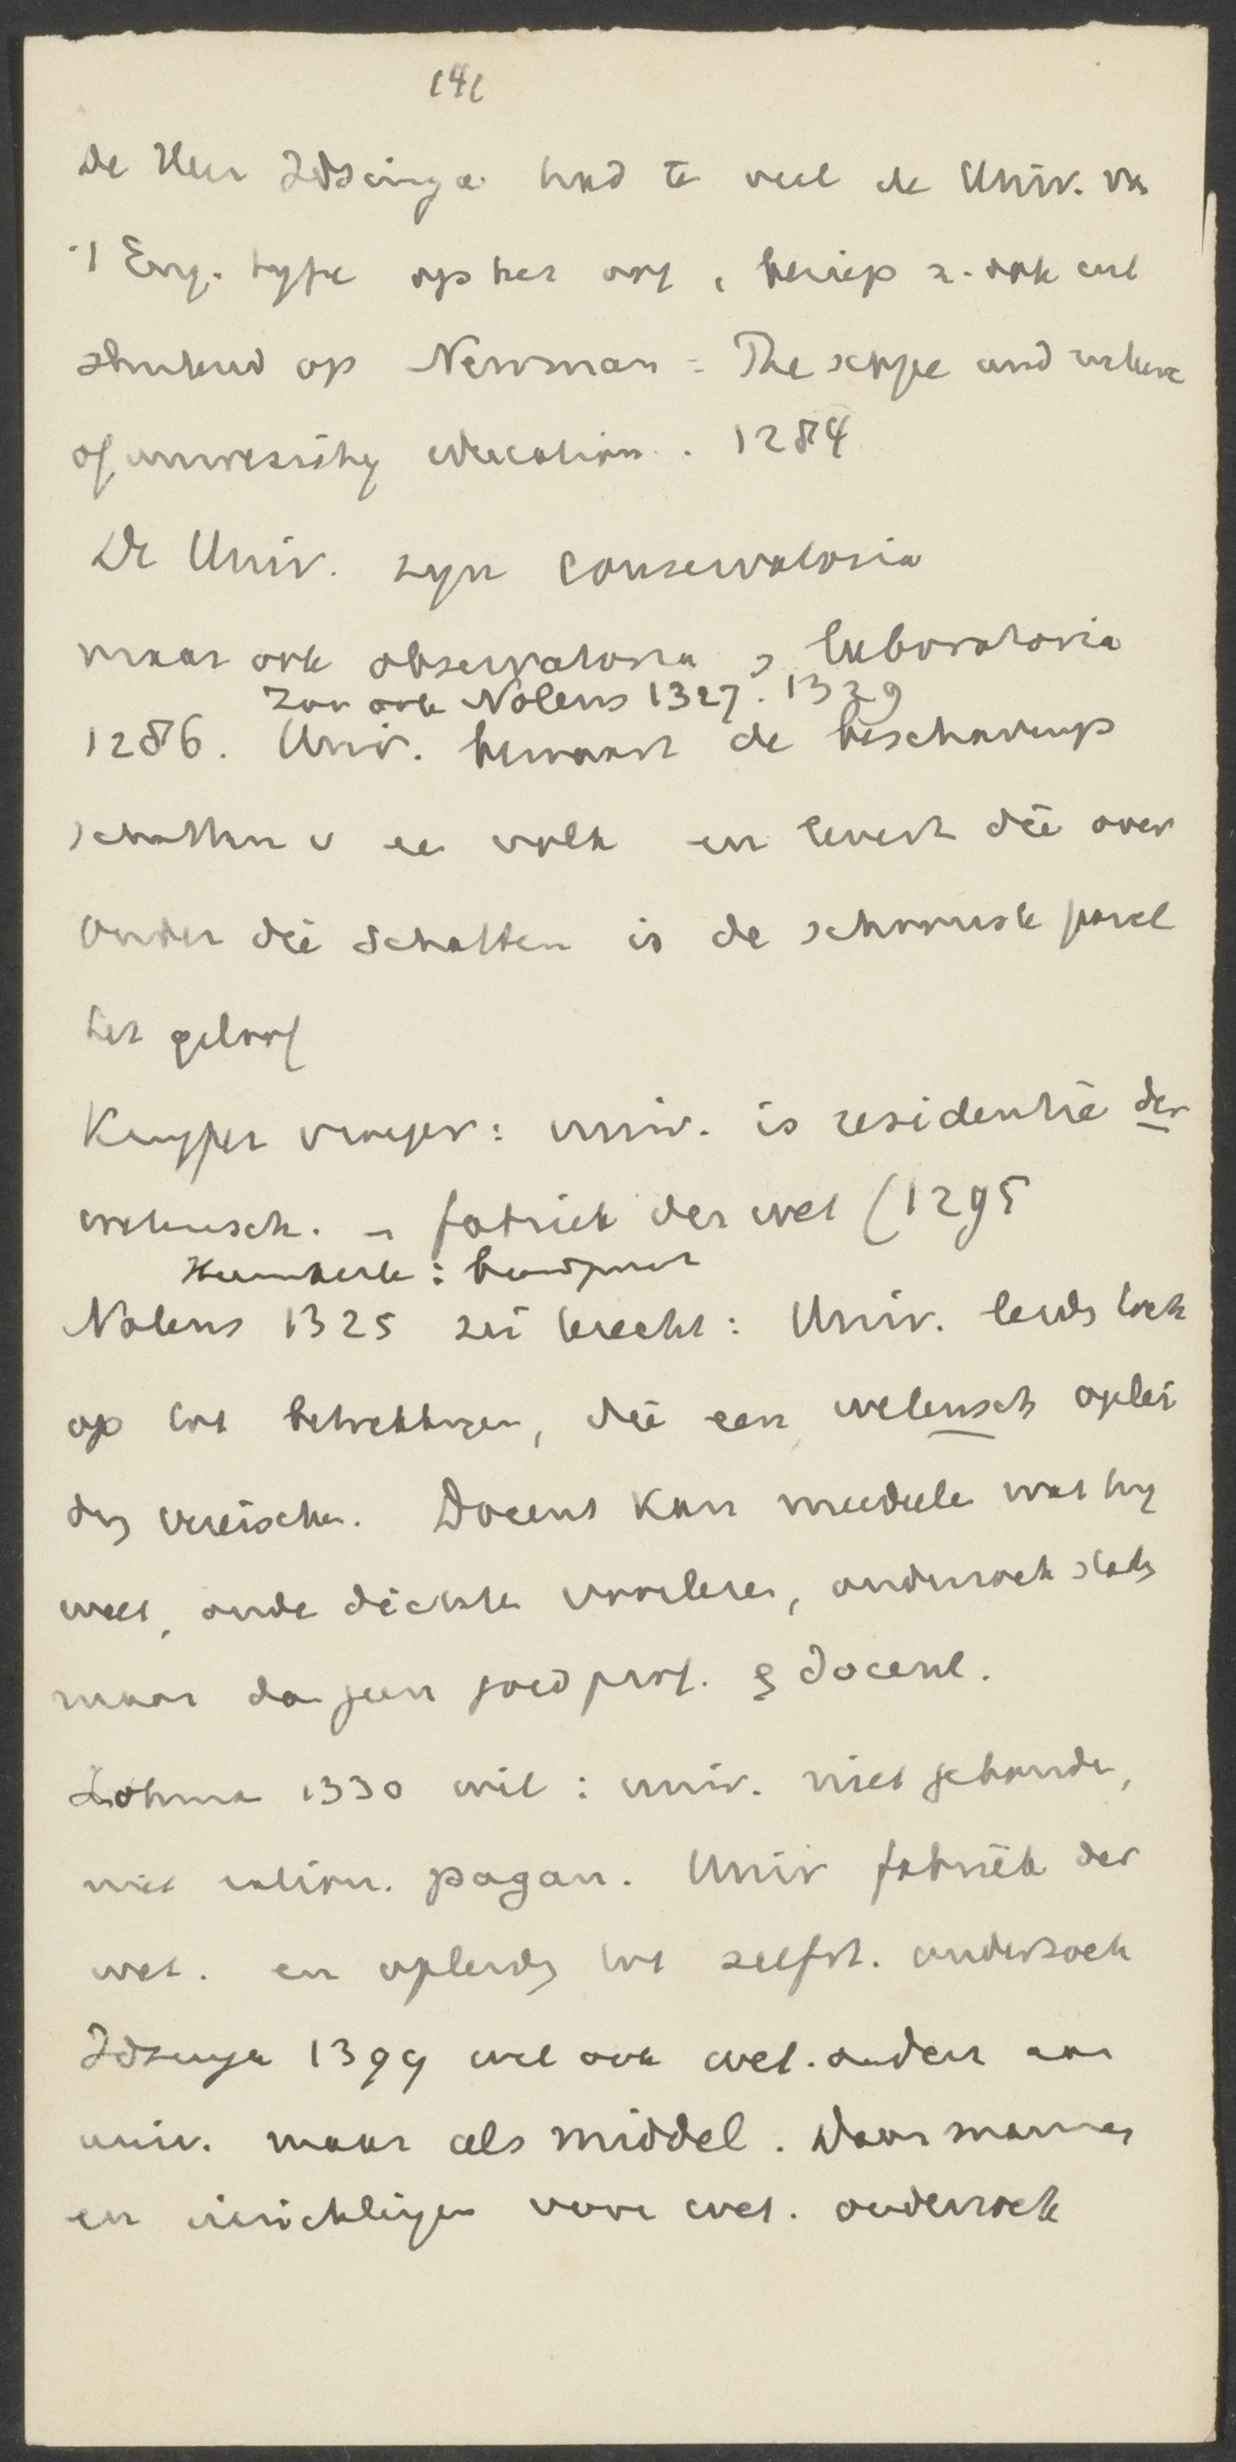 141
De Heer Idsinga had te veel de Univ. van
't Eng. type op het oog, beriep z. ook
op Newman = The scope and nature
of university education. 1284
De Univ. zyn conservatoria
maar ook observatoria, laboratoria
Zoo ook Nolens 1327. 1329
1286. Univ. bewaart de beschavings
schatten v ee volk en levert die over
Onder die schatten is de schoonste parel
het geloof
Kuyper vroeger: univ. is residentie der
wetensch. - fabriek der wet (1295
Heemskerk:
Nolens 1325 zei terecht: Univ. leidt toch
op tot betrekkingen, die een wetensch oplei
ding vereischen. Docent kan meedeelen wat hy
weet, oude voorlezen, onderzoek
maar da geen goed prof. & docent.
Lohman 1330 wil: univ. niet gebonden,
niet pagan. Univ fabriek der
wet. en opleidg tot zelfst. onderzoek
Idsinga 1399 wel ook wet. onderz aan
univ. maar als middel. Daar
en inrichtingen voor wet. onderzoek